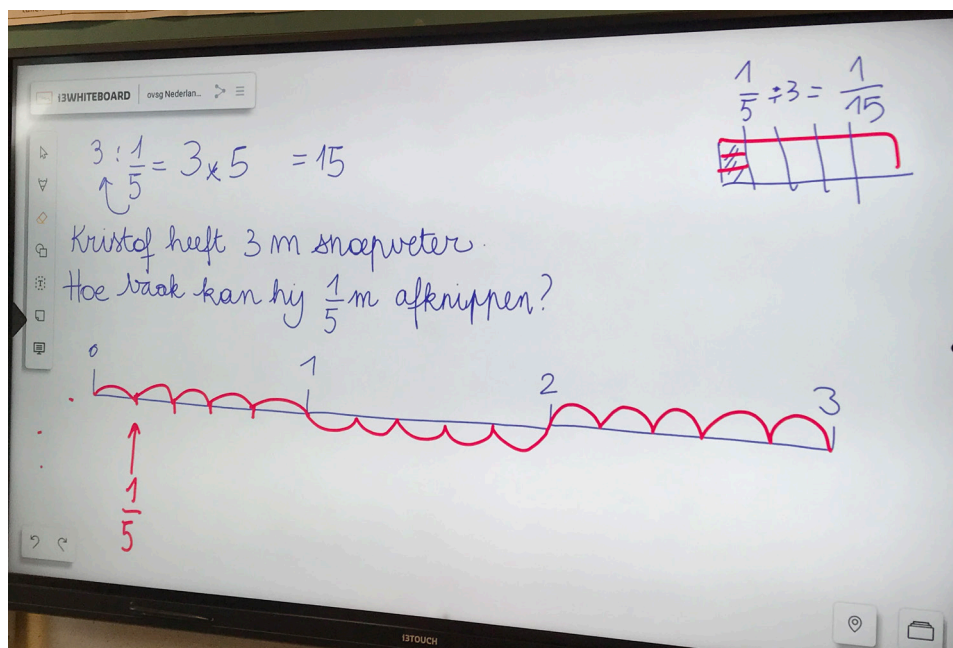 i3WHITEBOARD ovsg Nederlan...
1/5 ÷ 3 = 1/15
3 : 1/5 = 3 x 5 = 15
Kristof heeft 3 m snoepveter.
Hoe vaak kan hij 1/5 m afknippen?
0 1 2 3
1/5
i3TOUCH